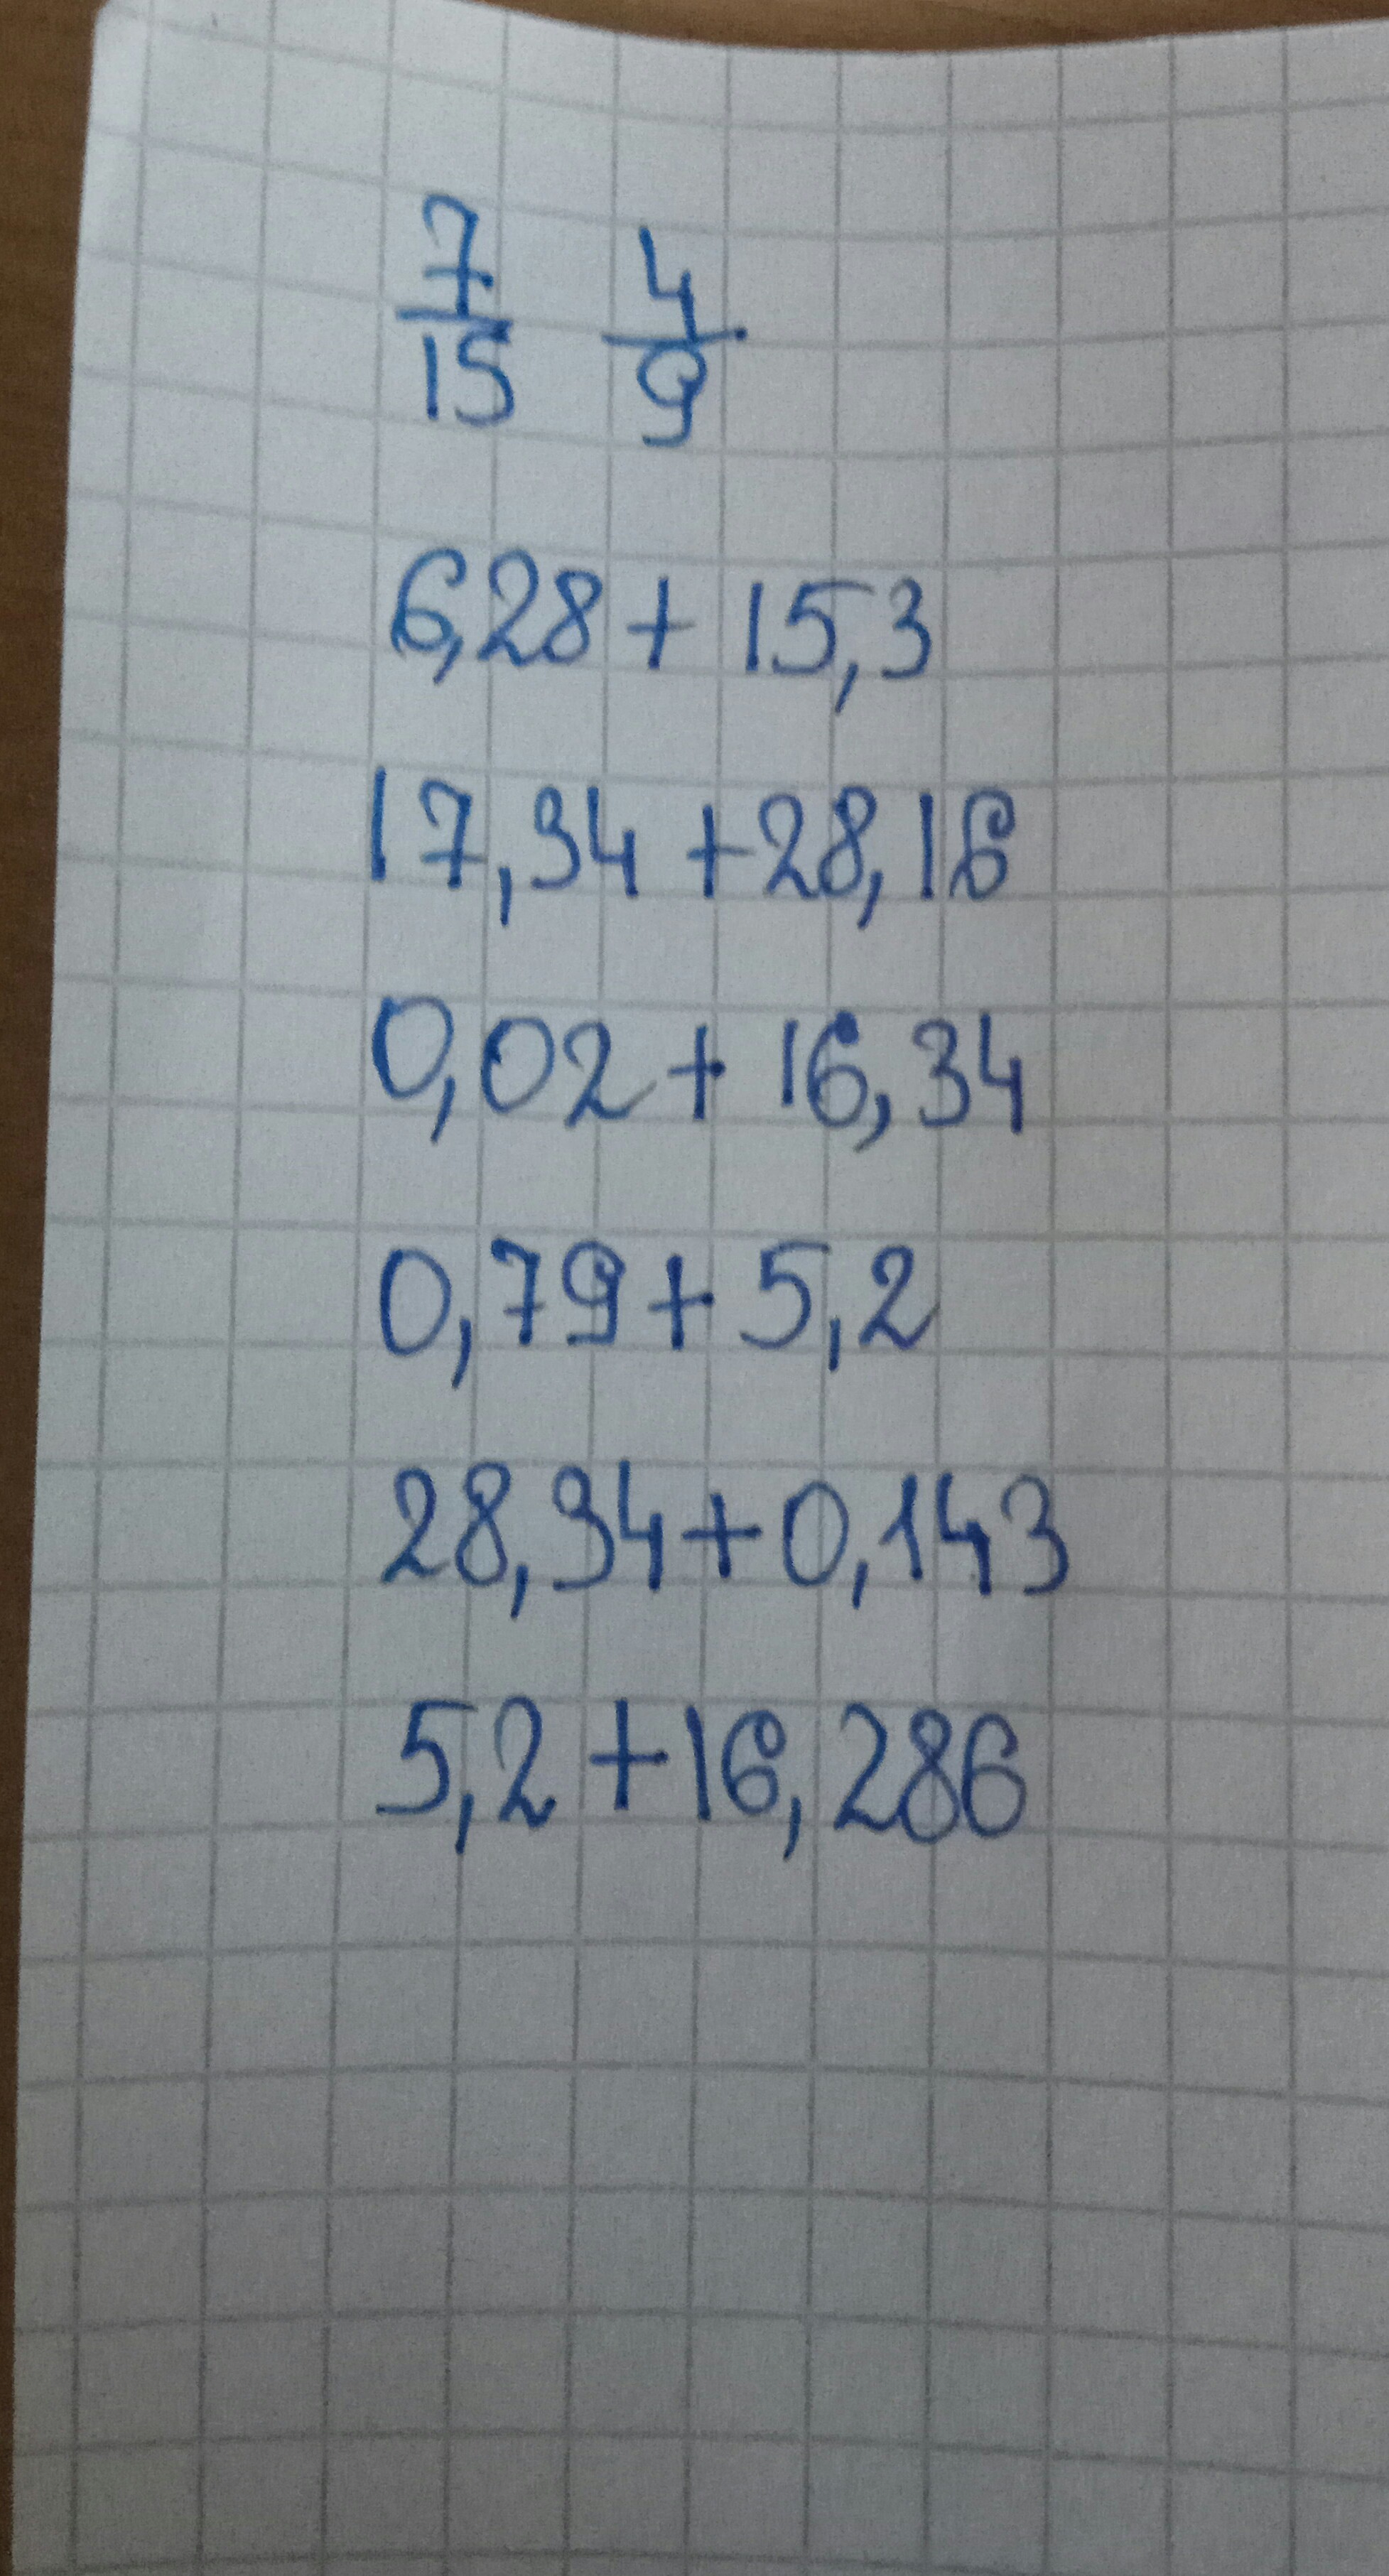 7/15 4/9
6,28 + 15,3
17,34 + 28,16
0,02 + 16,34
0,79 + 5,2
28,34 + 0,143
5,2 + 16,286